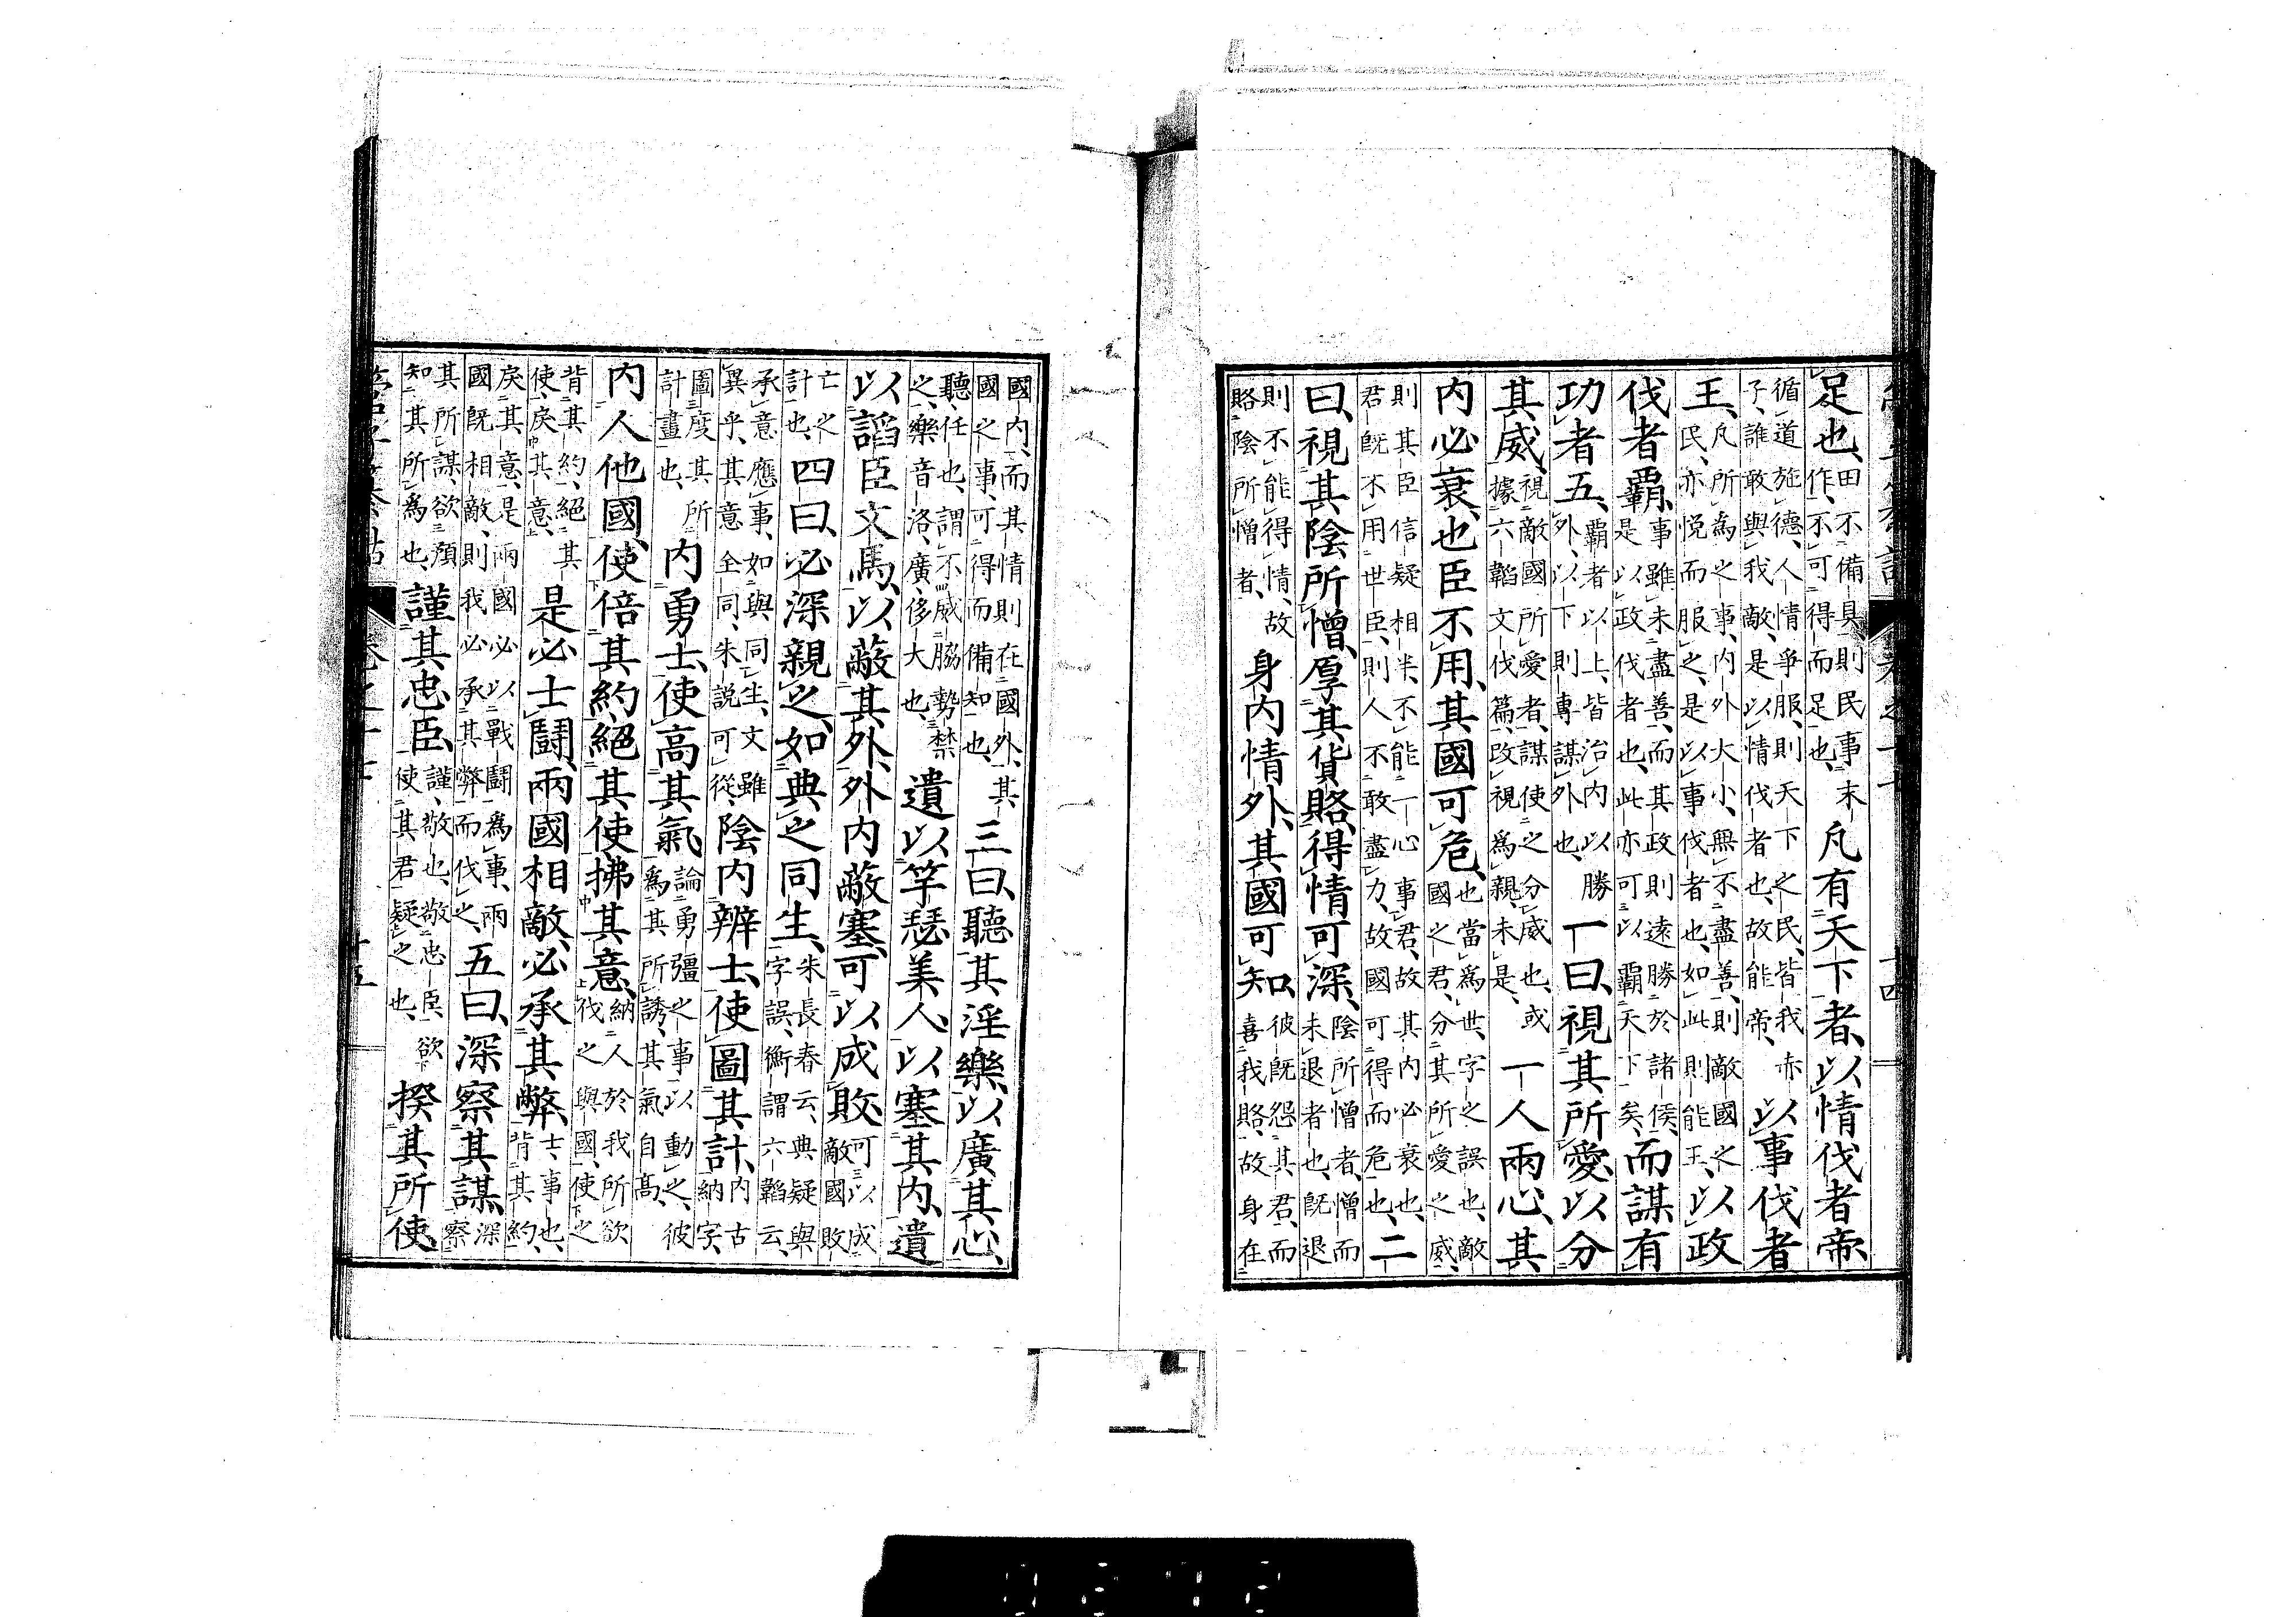 足也、田不備具、則民事末作、不可得而足也、凡有天下者、以情伐者帝、
循道施德、人情爭服、則天下之民、皆我赤子、誰敢與我敵、是以情伐者也、故能帝、以事伐者
王、凡所爲之事、内外大小、無不盡善、則敵國之民、亦悦而服之、是以事伐者也、如此則能王、以政
伐者霸、事雖未盡善、而其政則遠勝於諸侯、是以政伐者也、此亦可以霸天下矣、而謀有
功者五、霸者以上、皆治内以勝外、以下則專謀外也、一曰、視其所愛、以分
其威、視敵國所愛者、謀使之分威也、或據六韜文伐篇、改視爲親、未是、一人兩心、其
内必衰也、臣不用、其國可危、也當爲世、字之誤也、敵國之君、分其所愛之威、
則其臣信疑相半、不能一心事君、故其内必衰也、君既不用世臣、則人不敢盡力、故國可得而危也、二
曰、視其陰所憎、厚其貨賂、得情可深、陰所憎者、憎而未退者也、既退
則不能得情、故賂陰所憎者、身内情外、其國可知、彼既怨其君、而喜我賂、故身在
國内、而其情則在國外、其國之事、可得而備知也、三曰、聽其淫樂、以廣其心、
聽、任也、謂不威脇勢禁之、樂音洛、廣、侈大也、遺以竽瑟美人、以塞其内、遺
以諂臣文馬、以蔽其外、外内蔽塞、可以成敗、可以成敵國敗
亡之計也、四曰、必深親之、如典之同生、朱長春云、典疑與字誤、衡謂六韜云、
承意應事、如與同生、文雖異乎、其意全同、朱説可從、陰内辨士、使圖其計、内古納字、
圖度其所計畫也、内勇士、使高其氣、論勇彊之事、以動之、彼爲其所誘、其氣自高、
内人他國、使倍其約、絕其使、拂其意、納人於我所欲伐之與國、使之
背其約、絕其使、戾其意、是必士鬪、兩國相敵、必承其弊、士、事也、背其約、
戾其意、是兩國必以戰鬪爲事、兩國既相敵、則我必承其弊而伐之、五曰、深察其謀、深察
其所謀、欲預知其所爲也、謹其忠臣、謹、敬也、敬忠臣、欲使其君疑之也、揆其所使、